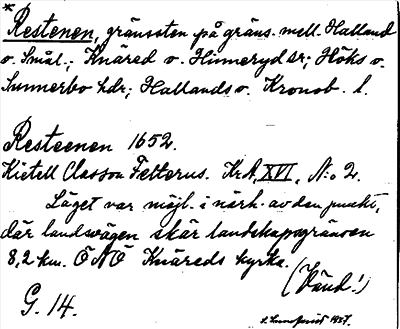 *
Restenen, gränssten på gräns. mell. Halland
o. Smål.; Knäred o. Hinneryd sr; Höks o.
Sunnerbo hdr; Hallands o. Kronob. l.
Resteenen 1652.
Kietell Classon Felterus. KrA, XVI, N:o 2.
Läget var möjl. i närh. av den punkt,
där landsvägen skär landskapsgränsen
8,2 km. ÖNÖ Knäreds kyrka.
(Vänd!)
G. 14.
1957.